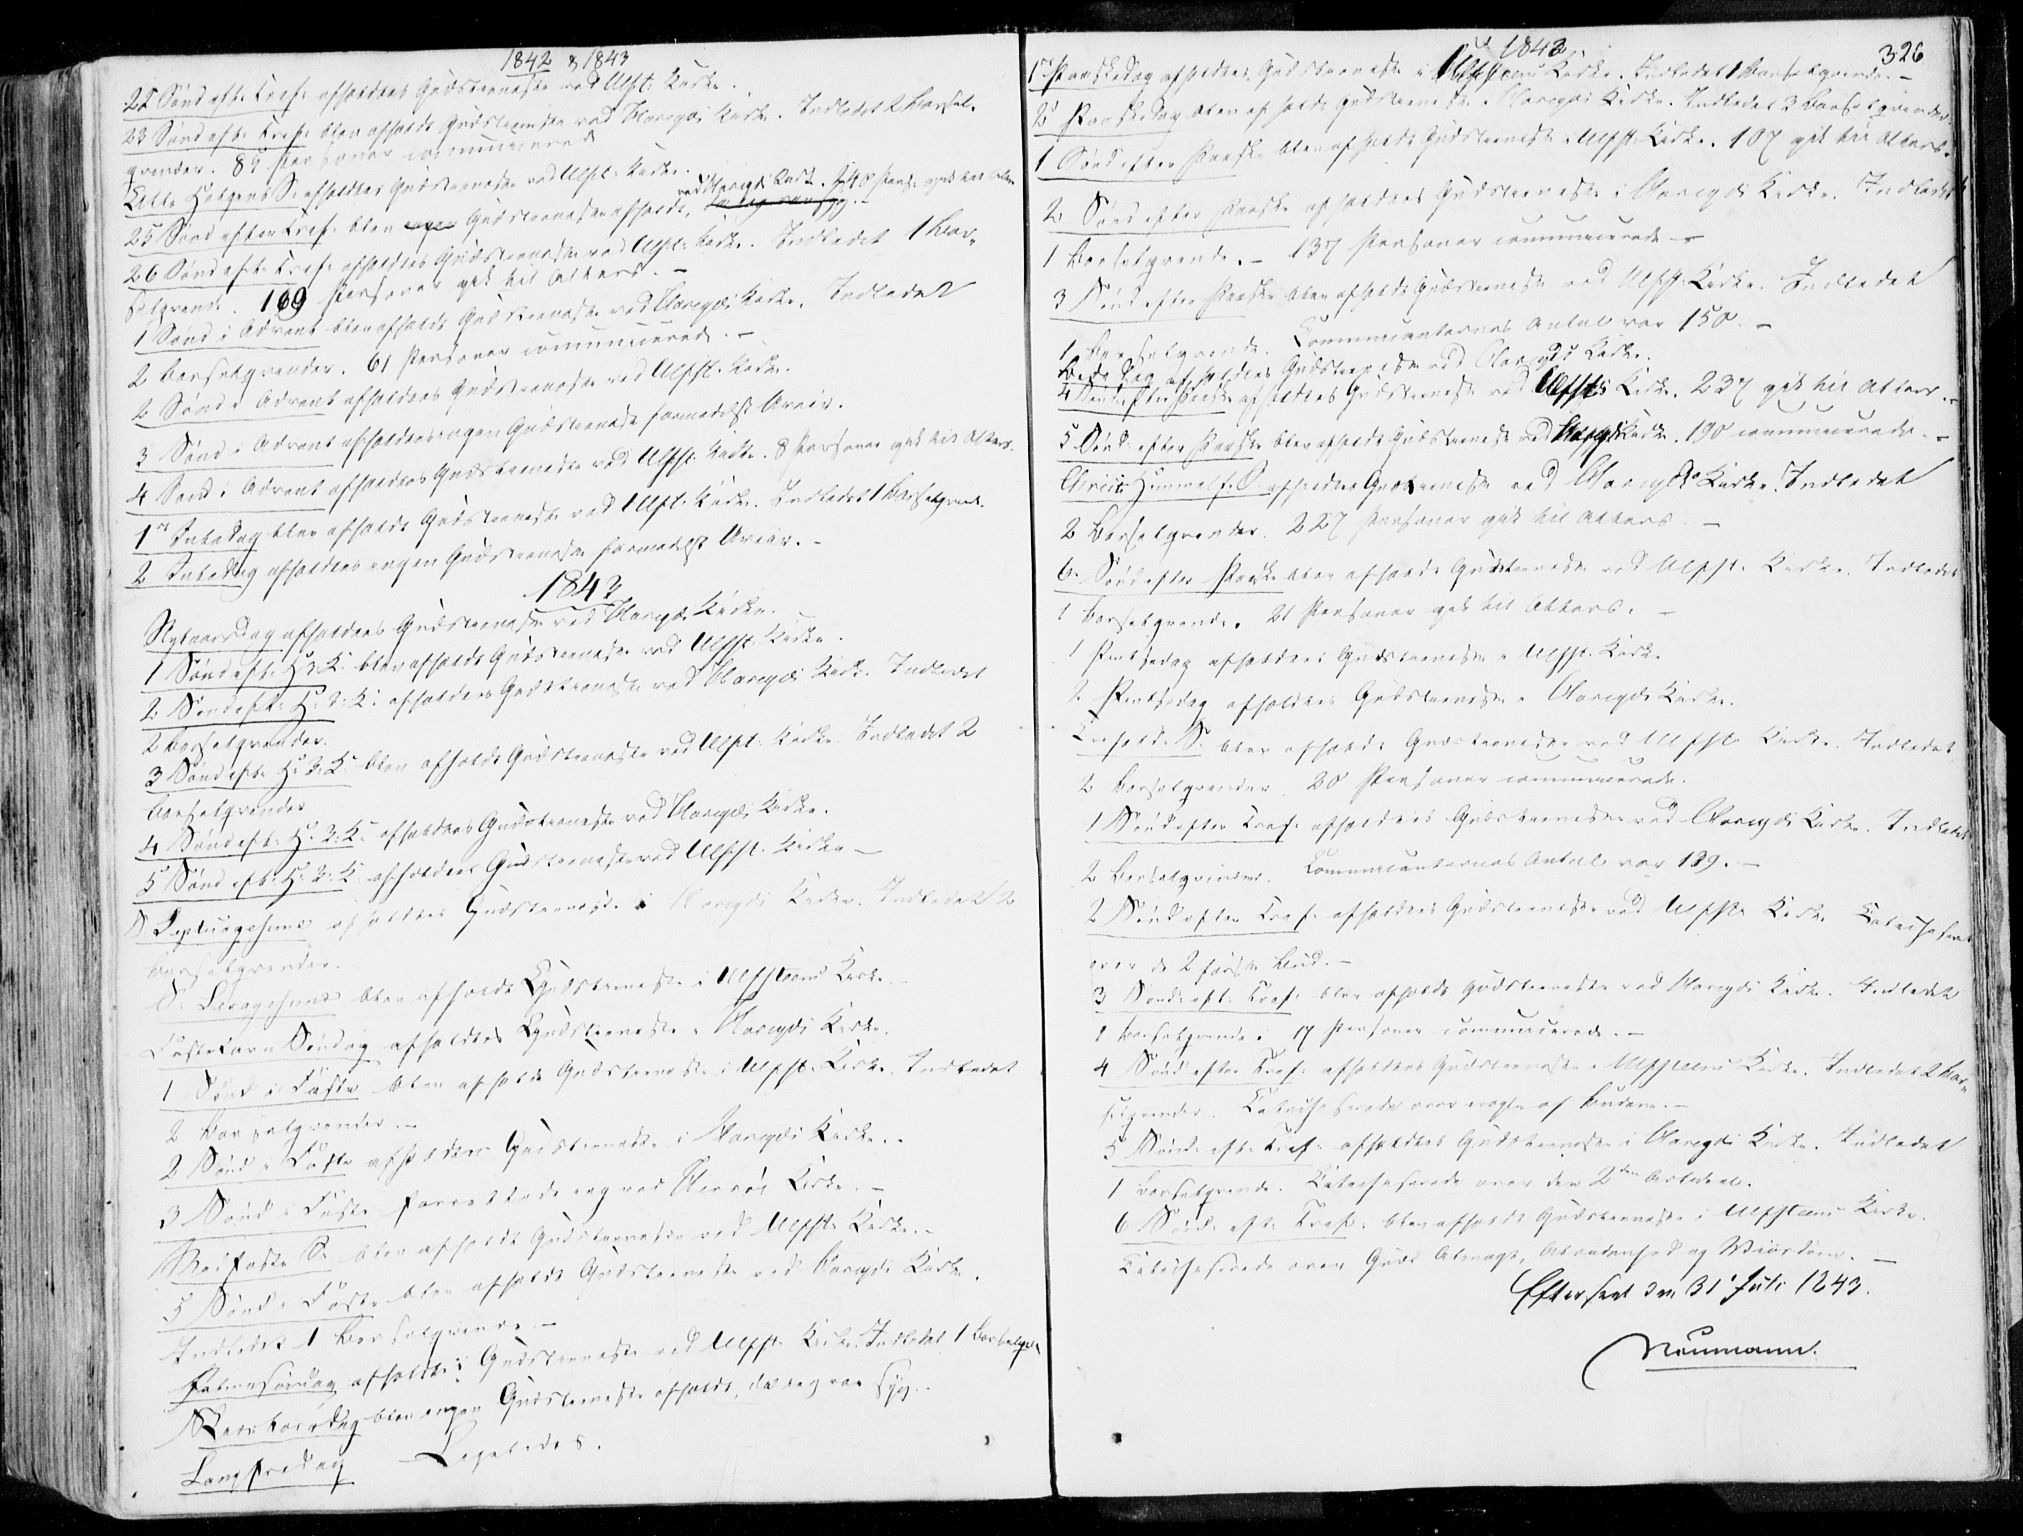 1842 & 1843
22 Sønd. eft. Tref: afholdtes Gudstieneste ved Ulfst: Kirke.
23 Sønd eft. Tref: blev afholdt Gudstieneste ved Haregds Kirke. Indledet 2 Barsel-
qvinder. 84 Personer communicerede
Alle Helgens S: afholdtes Gudstieneste ved Ulfst: Kirke.
25 Sønd efter Tref: blev Gudstieneste afholdt, ved Haregds Kirke.
26 Sønd eft. Tref: afholdtes Gudstieneste ved Ulfst: Kirke. Indledet 1 Bar-
selqvinde. 169 Personer gik til Alters. -
1 Sønd i Advent blev afholdt Gudstieneste ved Haregds Kirke. Indledet
2 Barselqvinder. 61 Personer communicerede. -
2 Sønd i Advent afholdtes Gudstieneste ved Ulfst. Kirke.
3 Sønd i Advent afholdtes ingen Gudstieneste formedelst Uveir.
4 Sønd i Advent afholdtes Gudstieneste ved Ulfst. Kirke. 8 Personer gik til Alters.
1ste Juledag blev afholdt Gudstieneste ved Ulfst. Kirke. Indledet 1 Barselqvinde.
2 Juledag afholdtes ingen Gudstieneste formedelst Uveir. -
1843
Nytaarsdag afholdtes Gudstieneste ved Haregds Kirke.
1 Sønd eft. H: 3: K: blev afholdt Gudstieneste ved Ulfst. Kirke.
2 Sønd eft: H: 3: K: afholdtes Gudstieneste ved Haregds Kirke. Indledet
2 Barselqvinder.
3 Sønd eft. H: 3: K: blev afholdt Gudstieneste ved Ulfst. Kirke. Indledet 2
Barselqvinder
4 Sønd eft: H: 3: K: afholdtes Gudstieneste ved Haregds Kirke.
5 Sønd eft: H: 3: K: afholdtes Gudstieneste ved Ulfst. Kirke -
S. Septuagesima afholdtes Gudstieneste i Haregds Kirke. Indledet 2
Barselqvinder.
S. Sexagesima blev afholdt Gudstieneste i Ulfsteens Kirke.
Fastelavn Søndag afholdtes Gudstieneste i Haregds Kirke.
1 Sønd i Faste blev afholdt Gudstieneste i Ulfst. Kirke. Indledet
2 Barselqvinder. -
2 Sønd i Faste afholdtes Gudstieneste i Haregds Kirke. -
3 Sønd i Faste forrettede jeg ved Herrøe Kirke. -
Midfaste S. blev afholdt Gudstieneste ved Ulfst. Kirke. -
5 Sønd i Faste blev afholdt Gudstieneste ved Haregds Kirke.
Indledet 1 Barselqvinde. -
Palmesøndag afholdtes Gudstieneste ved Ulfst. Kirke. Indledet 1 Barselqv.
Skærtorsdag blev ingen Gudstieneste afholdt, da jeg var syg. -
Langfredag Ligeledes.
1843
326
1ste Paaskedag afholdtes Gudstieneste i Ulfsteens Kirke. Indledet 1 Barselqvinde. -
2d Paaskedag blev afholdt Gudstieneste i Haregds Kirke. Indledet 3 Barselqvinder.
1 Sønd efter Paaske blev afholdt Gudstieneste i Ulfst. Kirke. 107 gik til Alters.
2 Sønd efter Paaske afholdtes Gudstieneste i Haregds Kirke. Indledet
1 Barselqvinde. - 137 Personer communicerede -
3 Sønd efter Paaske blev afholdt Gudstieneste ved Ulfst. Kirke. Indledet
1 Barselqvinde. Communicanternes Antal var 150. -
Bededag afholdtes Gudstieneste ved Haregds Kirke.
4 Sønd efter Paaske afholdtes Gudstieneste ved Ulfst: Kirke. 237 gik til Alters. -
5 Sønd: efter Paaske blev afholdt Gudstieneste ved Haregds Kirke. 190 communicerede. -
Christi Himmelf: D. afholdtes Gudstieneste ved Haregds Kirke. Indledet
2 Barselqvinder. 227 Personer gik til Alters. -
6. Sønd efter Paaske blev afholdt Gudstieneste ved Ulfst. Kirke. Indledet
1 Barselqvinde. 21 Personer gik til Alters. -
1 Pintsedag afholdtes Gudstieneste i Ulfst. Kirke
2 Pintsedag afholdtes Gudstieneste i Haregds Kirke.
Trefoldt. S. blev afholdt Gudstieneste ved Ulfst. Kirke. Indledet
2 Barselqvinder. 20 Personer communicerede.
1 Sønd efter Tref: afholdtes Gudstieneste ved Haregds Kirke. Indledet
2 Barselqvinder. Communicanternes Antal var 129. -
2 Sønd efter Tref: afholdtes Gudstieneste ved Ulfst. Kirke Catechiseret
over de 2 første Bud. -
3 Sønd. eft. Tref: blev afholdt Gudstieneste ved Haregds Kirke. Indledet
1 Barselqvinde. 17 Personer communicerede. -
4 Sønd efter Tref: afholdtes Gudstieneste i Ulfsteens Kirke. Indledet 2 Bar-
selqvinder. Catechiserede over nogle af Budene. -
5 Sønd: eft: Tref: afholdtes Gudstieneste i Haregds Kirke. Indledet
1 Barselqvinde. Catechiserede over den 2den Artikel.
6 Sønd: eft: Tref: blev afholdt Gudstieneste i Ulfsteens Kirke.
Catechiserede over Guds Almagt, Alvidenhed og Viisdom. -
Efterseet den 31' Juli 1843.
Neumann.